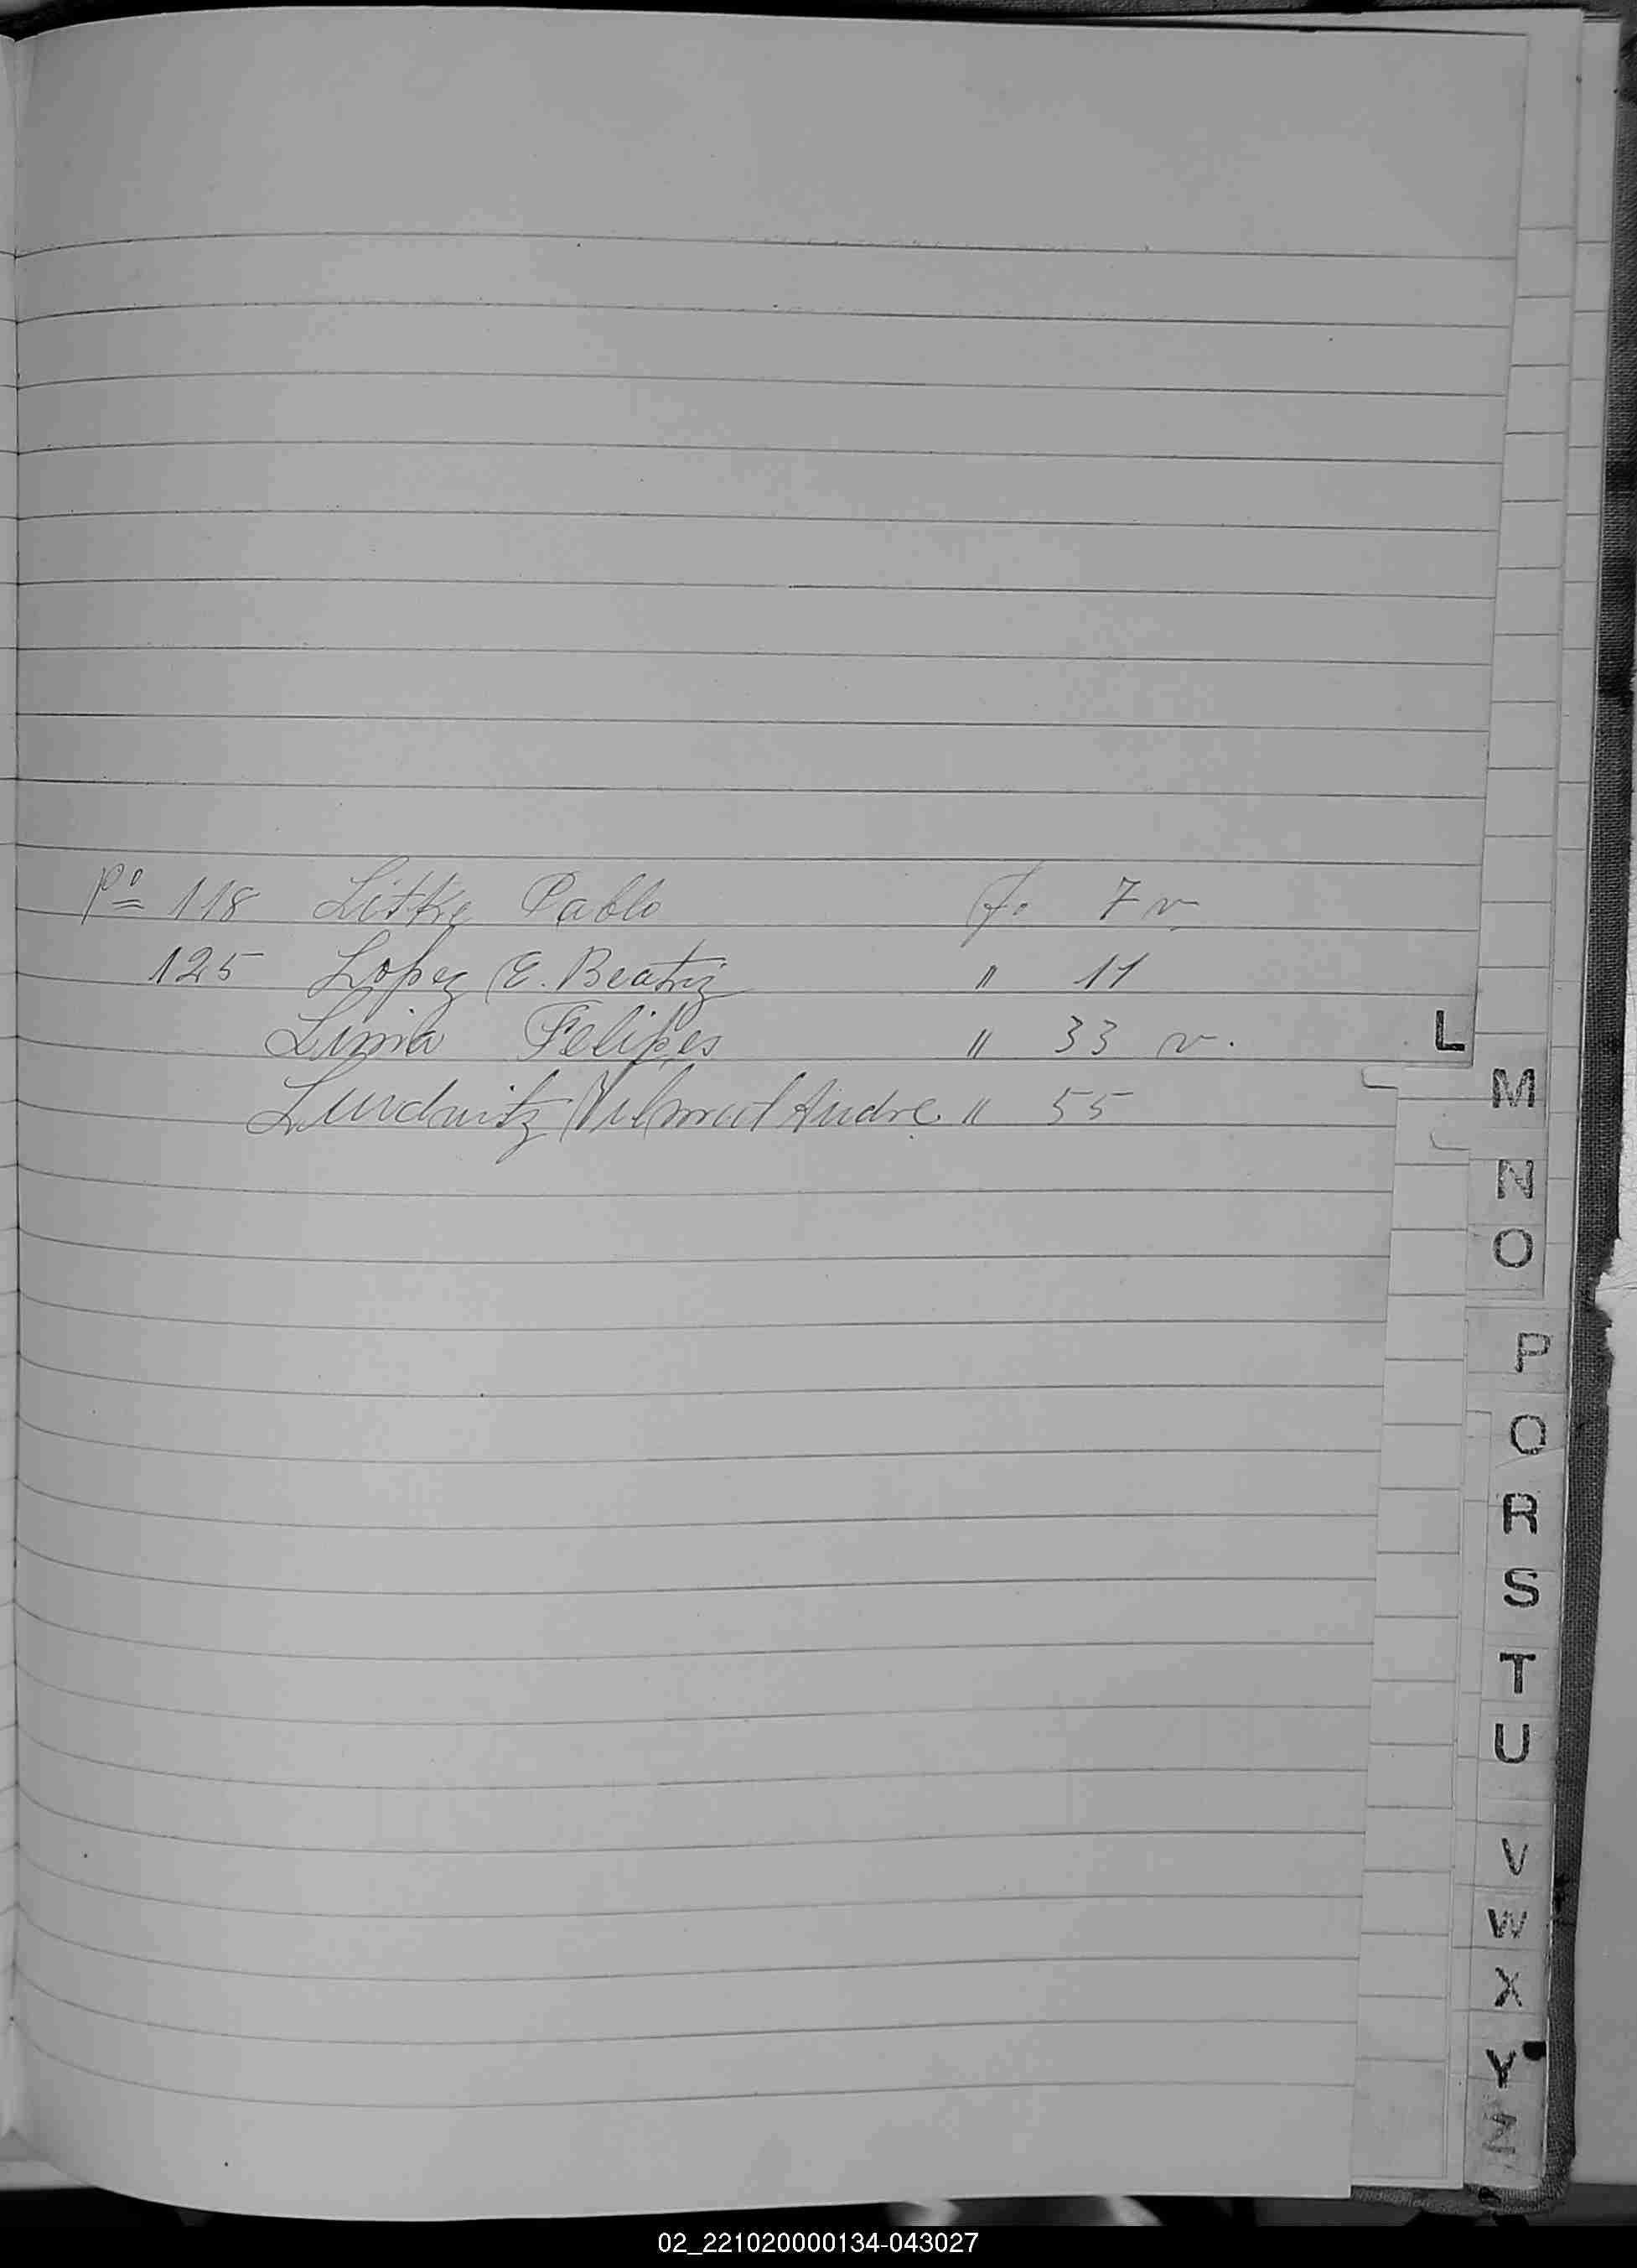 pº 118 Litke Pablo fo 7 v
125 Lopez E. Beatriz " 11
Limia Felipes " 33 v.
Andre " 55
L
M
N
O
P
Q
R
S
T
U
V
W
X
Y
Z
02_221020000134-043027